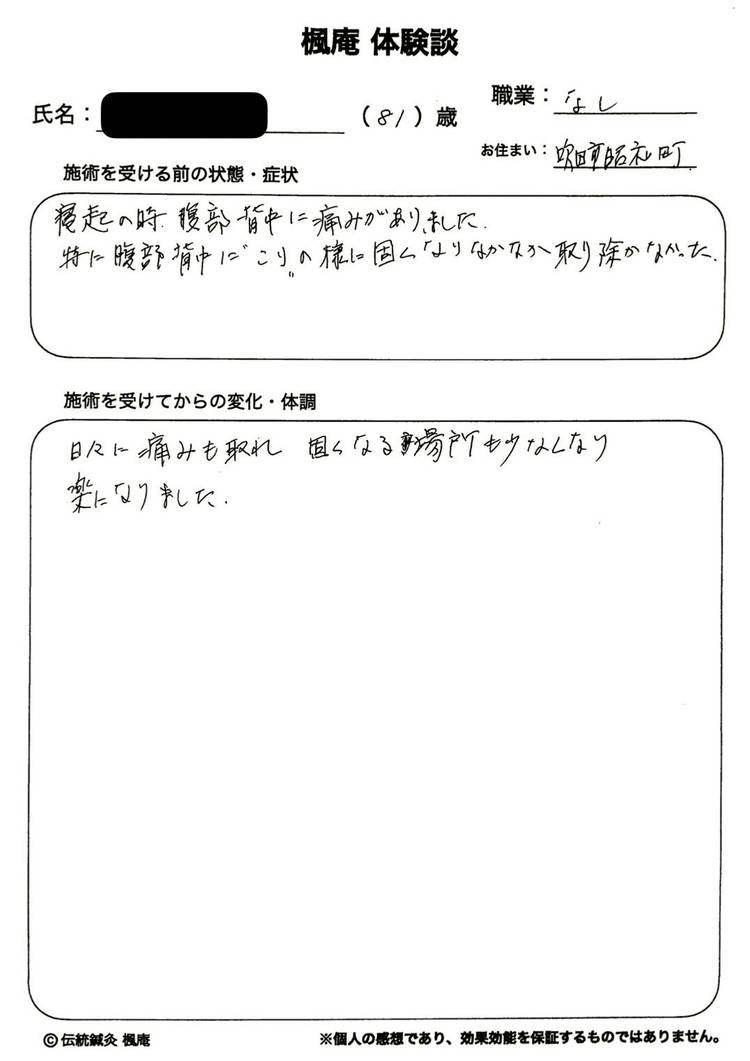 楓庵 体験談
氏名：
（81）歳
職業： なし
お住まい： 吹田市昭和町
施術を受ける前の状態・症状
寝起の時、腹部 背中に痛みがありました.
特に腹部 背中に"こり"の様に固くなりなかなか取り除かなかった.
施術を受けてからの変化・体調
日々に痛みも取れ 固くなる場所も少なくなり
楽になりました.
© 伝統鍼灸 楓庵
※個人の感想であり、効果効能を保証するものではありません。